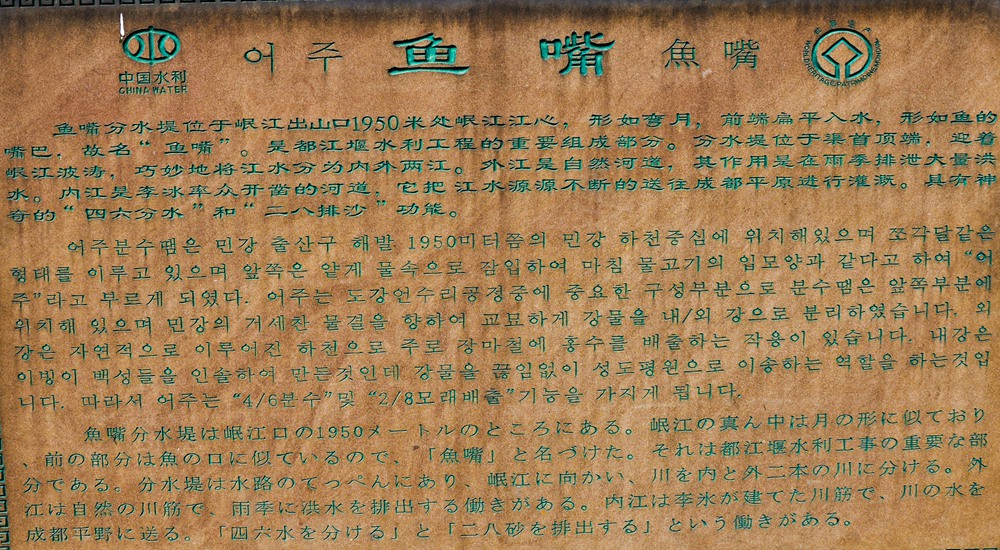 中国水利
CHINA WATER
어주 鱼嘴 魚嘴
鱼嘴分水堤位于岷江出山口1950米处岷江江心，形如弯月，前端扁平入水，形如鱼的
嘴巴，故名“鱼嘴”。是都江堰水利工程的重要组成部分。分水堤位于渠首顶端，迎着
岷江波涛，巧妙地将江水分为内外两江。外江是自然河道，其作用是在雨季排泄大量洪
水。内江是李冰率众开凿的河道，它把江水源源不断的送往成都平原进行灌溉。具有神
奇的“四六分水”和“二八排沙”功能。
어주분수땜은 민강 출산구 해발 1950미터쯤의 민강 하천중심에 위치해있으며 쪼각달같은
형태를 이루고 있으며 앞쪽은 얇게 물속으로 잠입하여 마침 물고기의 입모양과 같다고 하여 “어
주”라고 부르게 되였다. 어주는 도강언수리공정중에 중요한 구성부분으로 분수땜은 앞쪽부분에
위치해 있으며 민강의 거세찬 물결을 향하여 교묘하게 강물을 내/외 강으로 분리하였습니다. 외
강은 자연적으로 이루어진 하천으로 주로 장마철에 홍수를 배출하는 작용이 있습니다. 내강은
이빙이 백성들을 인솔하여 만든것인데 강물을 끊임없이 성도평원으로 이송하는 역할을 하는것입
니다. 따라서 어주는 “4/6분수”및 “2/8모래배출”기능을 가지게 됩니다.
魚嘴分水堤は岷江口の1950メートルのところにある。岷江の真ん中は月の形に似ており
、前の部分は魚の口に似ているので、「魚嘴」と名づけた。それは都江堰水利工事の重要な部
分である。分水堤は水路のてっぺんにあり、岷江に向かい、川を内と外二本の川に分ける。外
江は自然の川筋で、雨季に洪水を排出する働きがある。内江は李氷が建てた川筋で、川の水を
成都平野に送る。「四六水を分ける」と「二八砂を排出する」という働きがある。